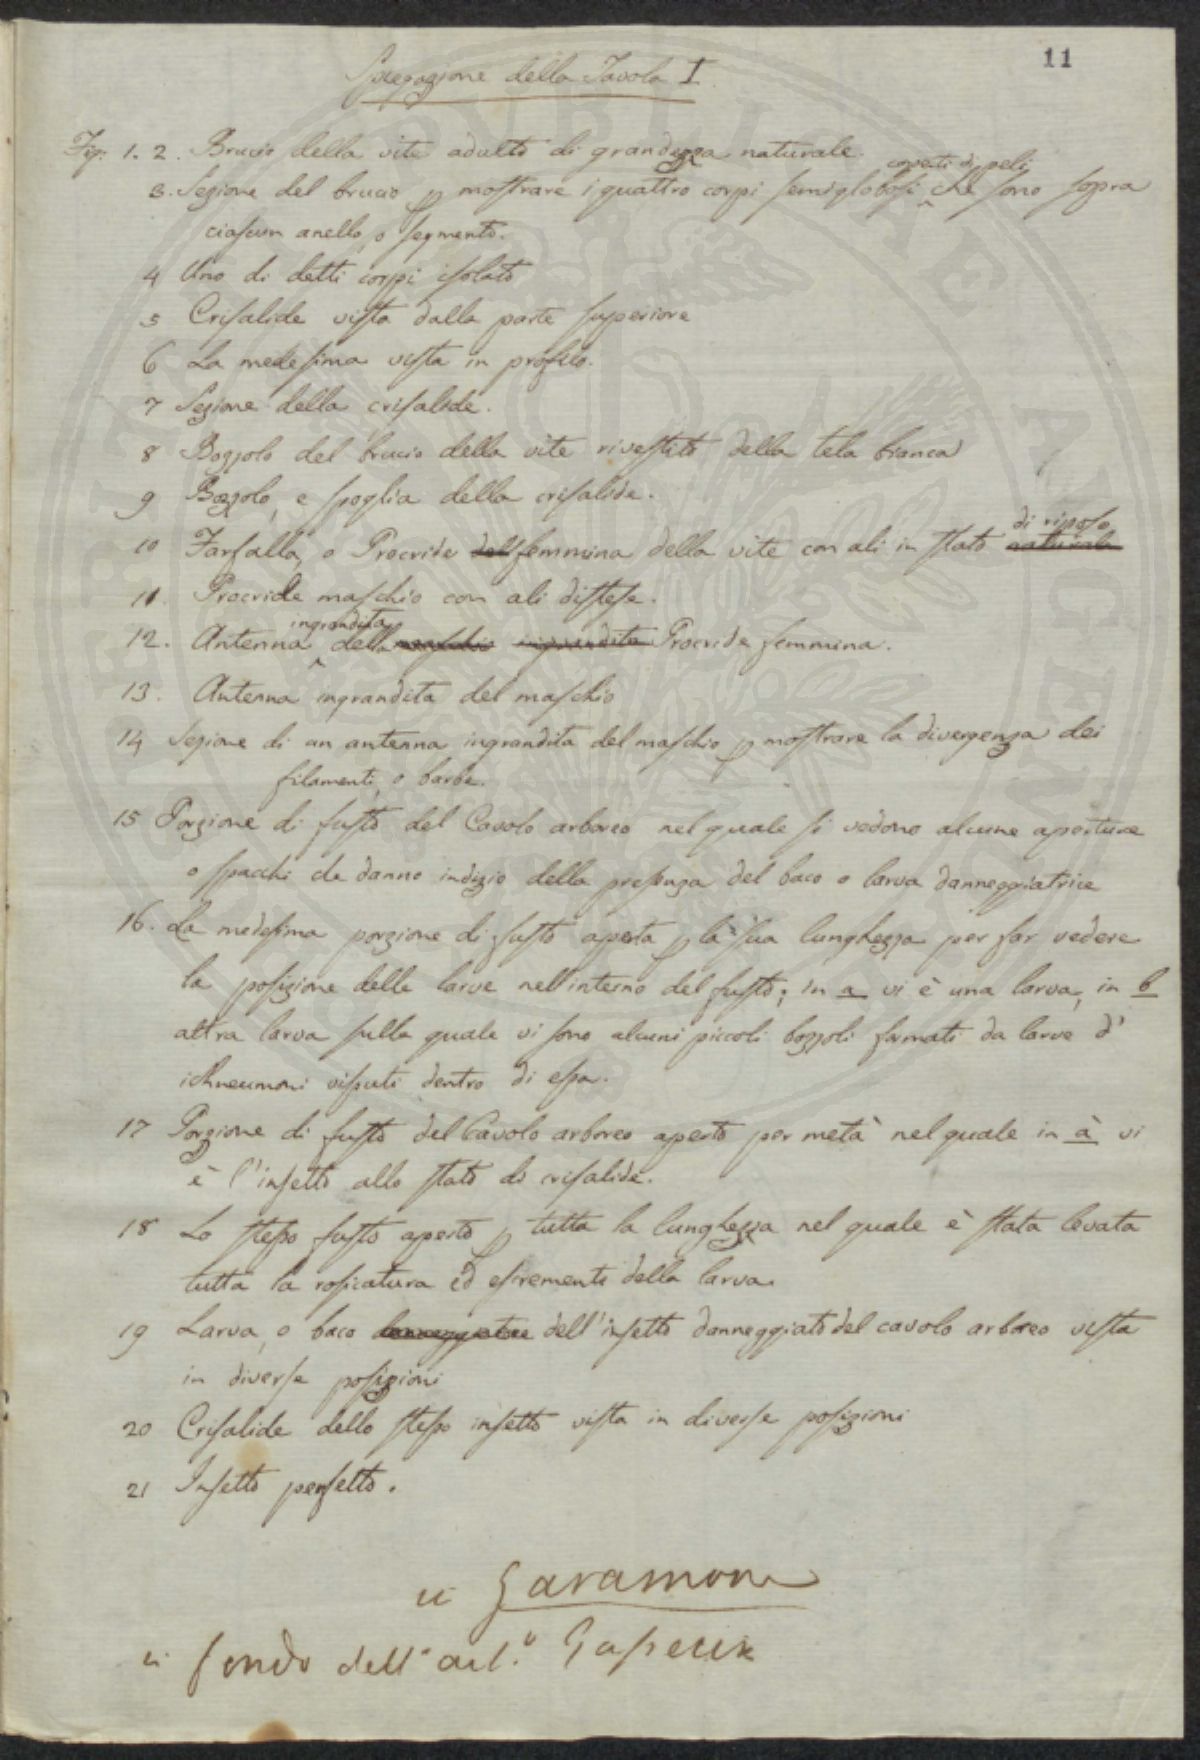 11
Spiegazione della Tavola I
Fig. 1. 2. Brucio della vite adulto di grandezza naturale.
coperti di peli
3. Sezione del brucio p mostrare i quattro corpi semiglobosi ^ che sono sopra
ciascun anello, o segmento.
4 Uno di detti corpi isolato
5 Crisalide vista dalla parte superiore
6 La medesima vista in profilo.
7 Sezione della crisalide.
8 Bozzolo del brucio della vite rivestito della tela bianca
9 Bozzolo, e spoglia della crisalide.
di riposo
10 Farfalla, o Procride del femmina della vite con ali in stato naturale
11. Procride maschio con ali distese.
ingrandita
12. Antenna ^ della maschio ingrandita Procride femmina.
13. Antenna ingrandita del maschio
14 Sezione di un antenna ingrandita del maschio p mostrare la divergenza dei
filamenti, o barbe.
15 Porzione di fusto del Cavolo arboreo nel quale si vedono alcune aperture
o spacchi che danno indizio della presenza del baco o larva danneggiatrice
16. La medesima porzione di fusto aperta p la sua lunghezza per far vedere
la posizione delle larve nell'interno del fusto; in a vi è una larva, in b
altra larva sulla quale vi sono alcuni piccoli bozzoli formati da larve d'
ichneumoni vissuti dentro di essa.
17 Porzione di fusto del Cavolo arboreo aperto per metà nel quale in à vi
è l'insetto allo stato di crisalide.
18 Lo stesso fusto aperto p tutta la lunghezza nel quale è stata levata
tutta la rosicatura ed escrementi della larva.
19 Larva, o baco danneggiatore dell'insetto danneggiato del cavolo arboreo vista
in diverse posizioni
20 Crisalide dello stesso insetto vista in diverse posizioni
21 Insetto perfetto.
in Garamone
in fondo dell'art.o